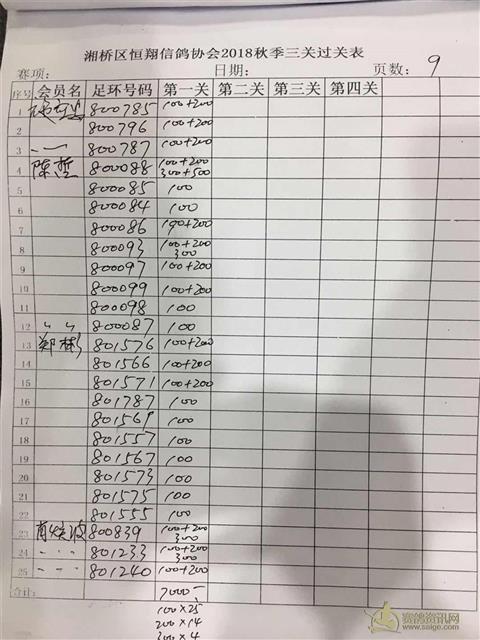 湘桥区恒翔信鸽协会2018秋季三关过关表
赛项: 日期: 页数: 9
序号 会员名 足环号码 第一关 第二关 第三关 第四关
1 800785 100+200
2 800796 100+200
3 〃 — 800787 100+200
4 陈哲 800088 100+200 300+500
5 800085 100
6 800084 100
7 800086 100+200
8 800093 100+200 300
9 800097 100+200
10 800099 100+200
11 800098 100
12 〃 〃 800087 100
13 郑彬 801576 100+200
14 801566 100+200
15 801571 100+200
16 801787 100
17 801569 100
18 801557 100
19 801567 100
20 801573 100
21 801575 100
22 801555 100
23 800839 100+200 300
24 801233 100+200 300
25 801240 100+200
合计: 7000
100×25
200×14
300×4
赛鸽资讯网
www.saige.com